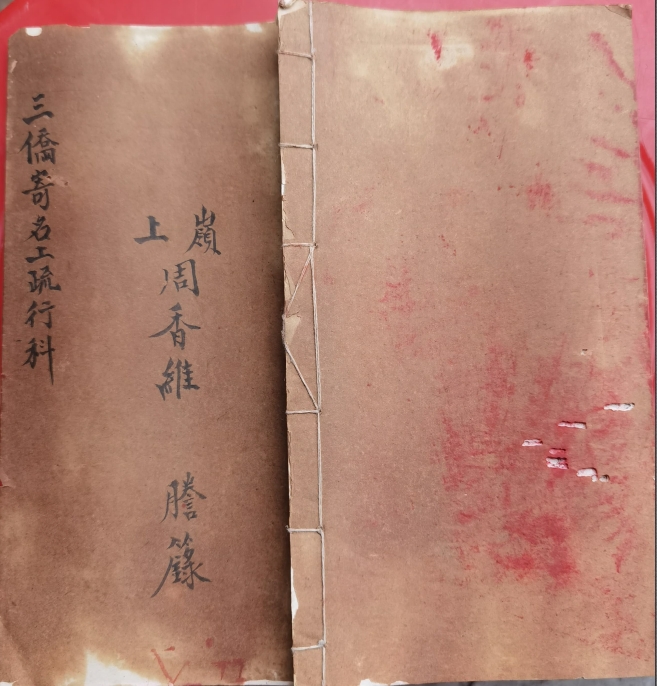 嶺上
周香維 謄籙
三僑寄名上疏行科